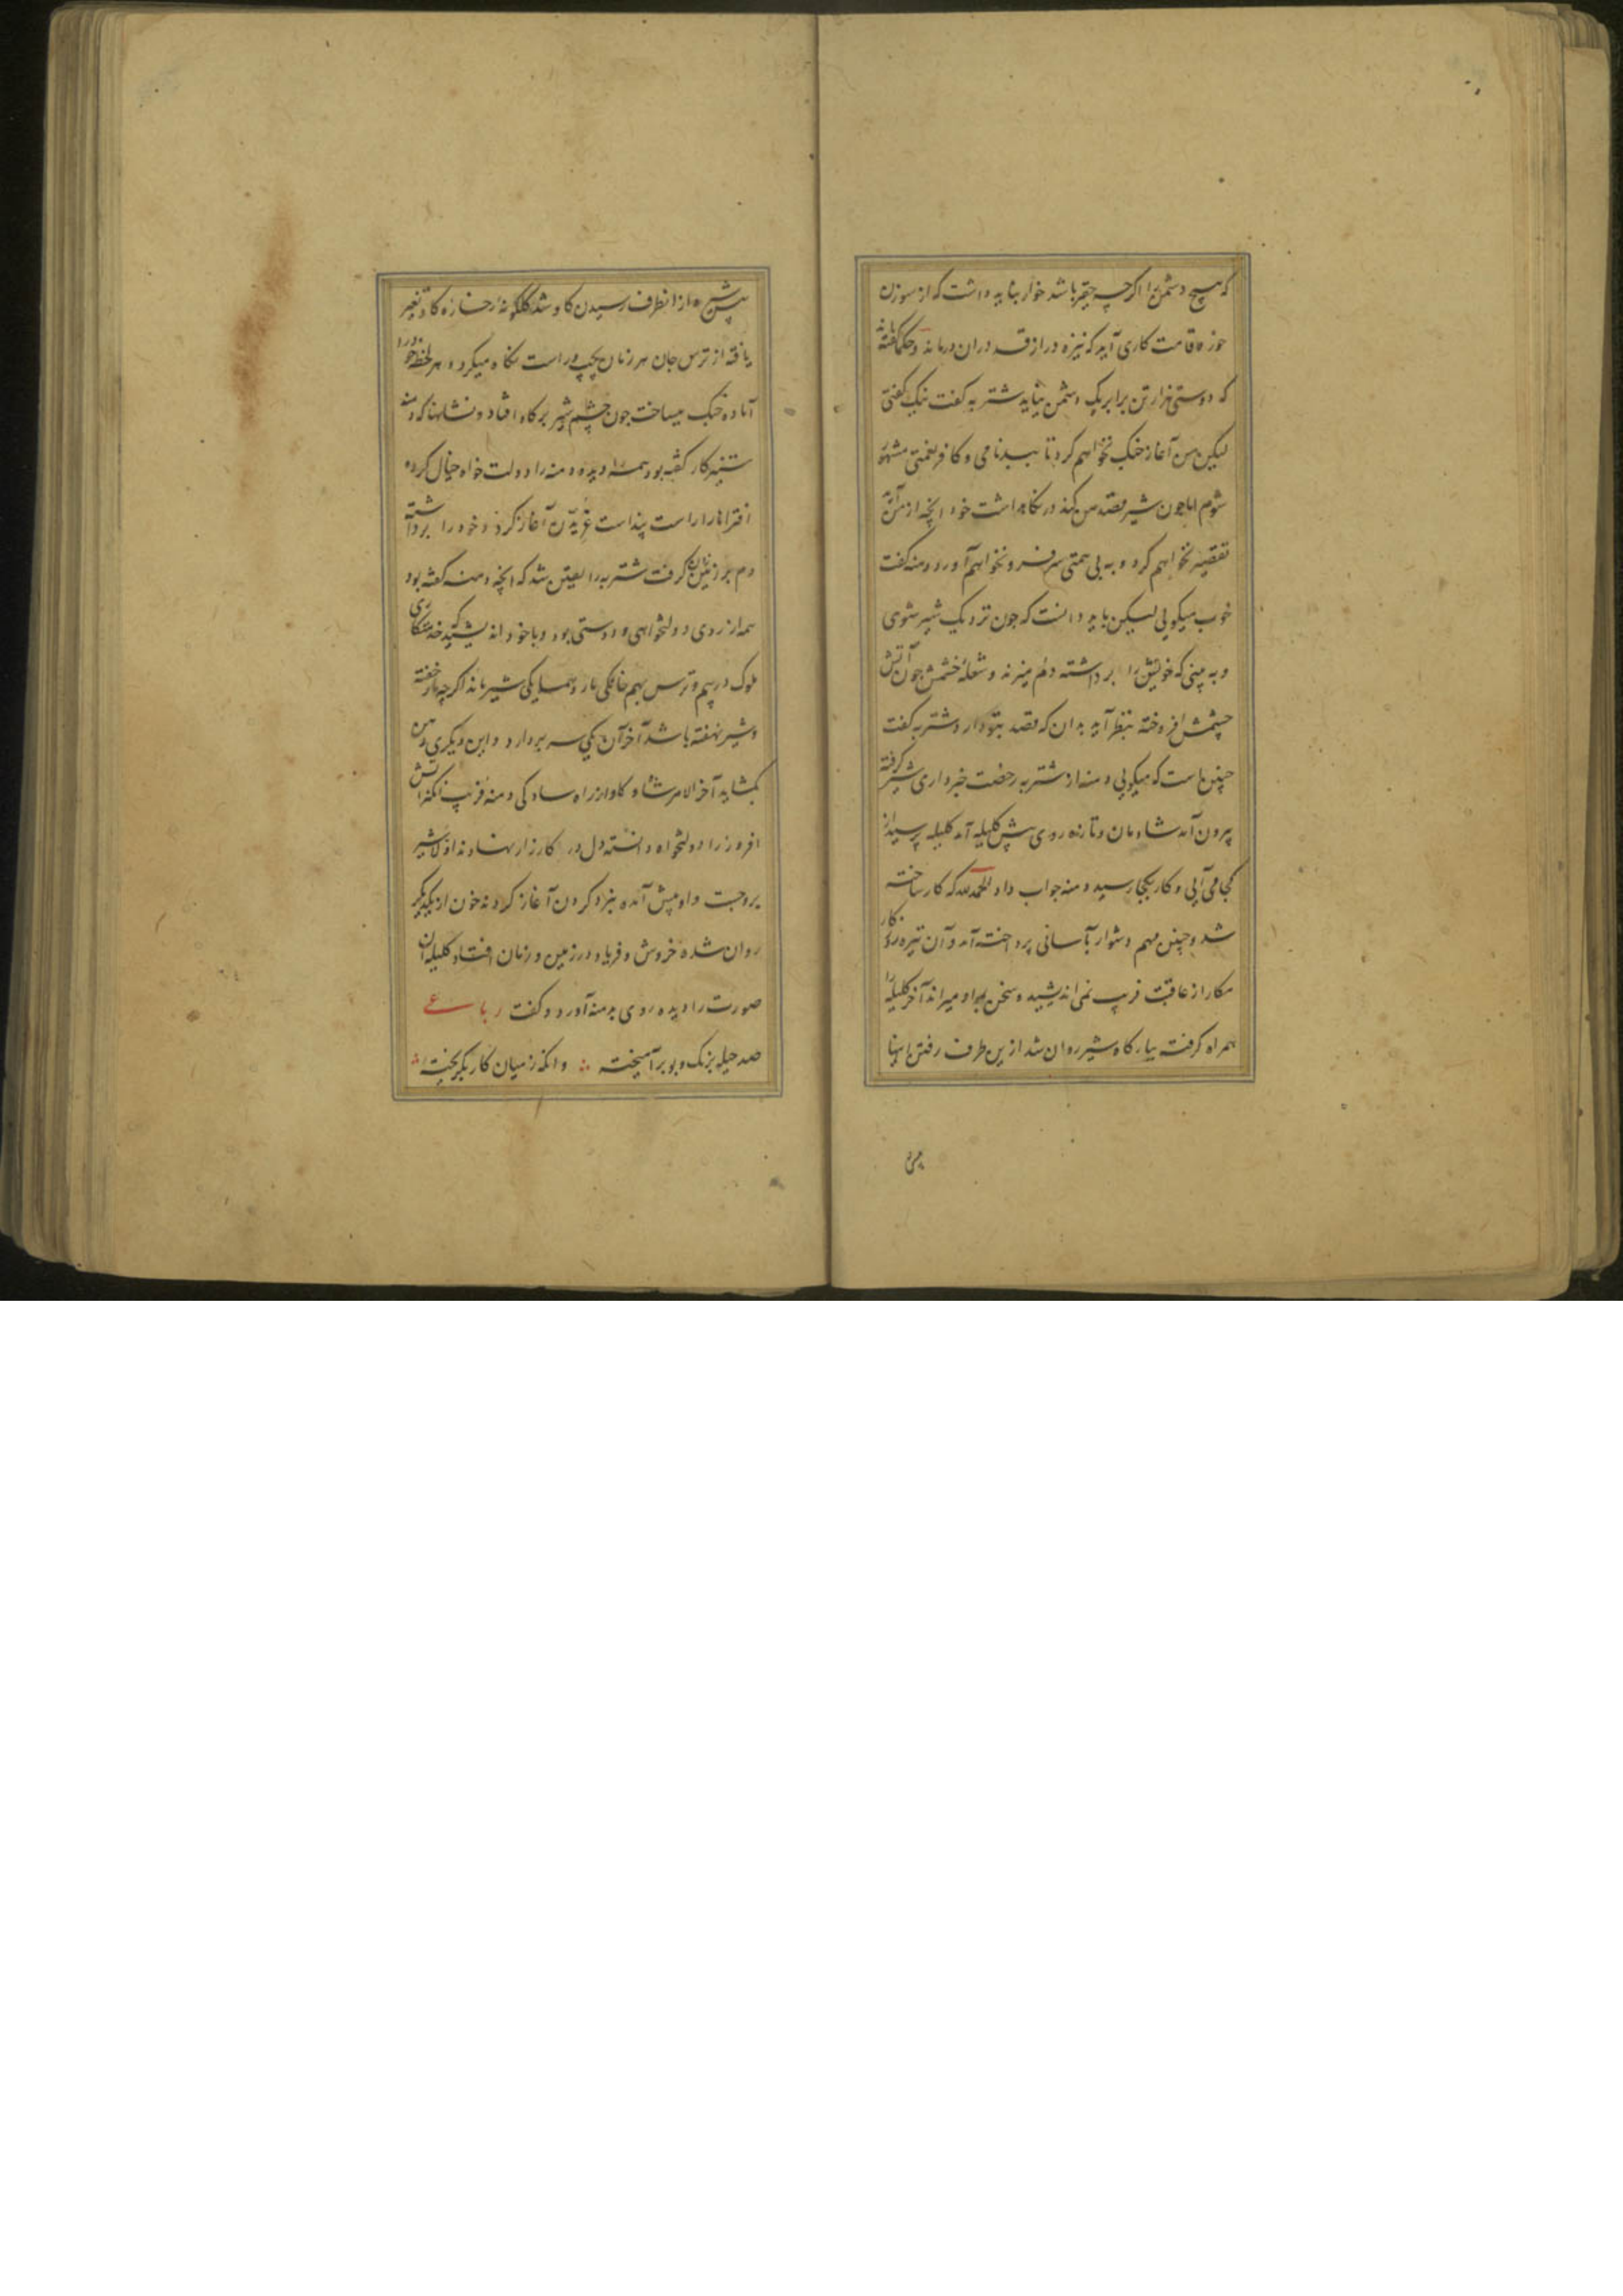 که هیچ دشمن را اگرچه حقیر باشد خوار نباید داشت که از سوزن
خورد قامت کاری آید که نیزه دراز قد دران درماند و حکما گفته اند
که دوستی هزار تن برابر یک دشمن نیاید شتربه گفت نیک گفتی
لیکن من آغاز جنک نخواهم کرد تا ببدنامی و کافرنعمتی مشهور
شوم اما چون شیر قصد من کند در نکاهداشت خود انچه از من آید
تقصیر نخواهم کرد و به بی همتی سر فرو نخواهم آورد دمنه گفت
خوب میکویی لیکن باید دانست که چون نزدیک شیر شوی
و به بینی که خویش را برداشته دم میزند و شعلهٔ خشمش چون آتش
چشمش افروخته بنظر آید بدان که قصد تو دارد شتربه گفت
چنین است که میکویی دمنه از شتربه رخصت خبرداری شیر گرفته
بیرون آمد شادمان و تازه روی پیش کلیله آمد کلیله پرسید از
کجا می آیی و کار بکجا رسید دمنه جواب داد الحمدلله که کار ساخته
شد و چنین مهم دشوار بآسانی پرداخته آمد و آن تیره روزکار
مکار از عاقبت فریب نمی اندیشید و سخن بمراد میراند آخر کلیله را
همراه گرفت ببارکاه شیر روان شد ازین طرف رفتن اینها
پیش
پیش شیر و از انطرف رسیدن کاو شد کلکونهٔ رخسارهٔ کاو تغیر
یافته از ترس جان هر زمان بچپ و راست نکاه میکرد و هر لحظه خود را
آماده جنک میساخت چون چشم شیر بر کاو افتاد و نشانها که دمنه
شتنبه کار گفته بود همه را دیده دمنه را دولت خواه خیال کرده
افتراها را راست پنداشت غریدن آغاز کرد و خود را برداشته
دم بر زمین زدن گرفت شتربه را یقین شد که انچه دمنه گفته بود
همه از روی دولتخواهی و دوستی بود و با خود اندیشید که خدمتکاری
ملوک در بیم و ترس بهم خانکی مار و همسایکی شیر ماند اگرچه مار خفته
و شیر نهفته باشد آخر آن یکی سر بردارد و این دیکری دهن
بکشاید آخر الامر شاه و کاو از راه سادکی دمنه فریب انکیز آتش
افروز را دولتخواه دانسته دل در کارزار نهادند اولا شیر
برو جست و او پیش آمده نبرد کردن آغاز کردند خون از یکدیکر
روان شده خروش و فریاد در زمین و زمان افتاد کلیله آن
صورت را دیده روی بدمنه آورد و گفت رباعی
صد حیله برنک و بو برآمیخته ؞ وانکه ز میان کار بکریخته ؞